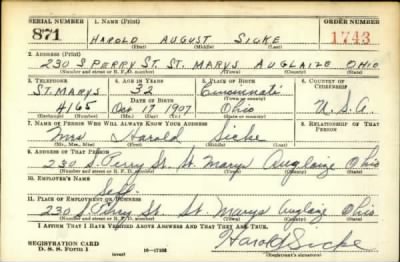 SERIAL NUMBER 1. NAME (Print) ORDER NUMBER
871 HAROLD AUGUST SICKE 1743
(First) (Middle) (Last)
2. ADDRESS (Print)
230 S PERRY ST. ST. MARYS AUGLAIZE OHIO
(Number and street or R. F. D. number) (Town) (County) (State)
3. TELEPHONE 4. AGE IN YEARS 5. PLACE OF BIRTH 6. COUNTRY OF CITIZENSHIP
ST. MARYS 32 Cincinnati
DATE OF BIRTH (Town or county)
4165 Oct 17 1907 Ohio U.S.A.
(Exchange) (Number) (Mo.) (Day) (Yr.) (State or country)
7. NAME OF PERSON WHO WILL ALWAYS KNOW YOUR ADDRESS 8. RELATIONSHIP OF THAT PERSON
Mrs Harold Sicke
(Mr., Mrs., Miss) (First) (Middle) (Last)
9. ADDRESS OF THAT PERSON
230 S. Perry St. St. Marys Auglaize Ohio
(Number and street or R. F. D. number) (Town) (County) (State)
10. EMPLOYER'S NAME
Self.
11. PLACE OF EMPLOYMENT OR BUSINESS
230 S. Perry St. St. Marys Auglaize Ohio.
(Number and street or R. F. D. number) (Town) (County) (State)
I AFFIRM THAT I HAVE VERIFIED ABOVE ANSWERS AND THAT THEY ARE TRUE.
REGISTRATION CARD
D. S. S. Form 1 (over) Harold Sicke
(Registrant's signature)